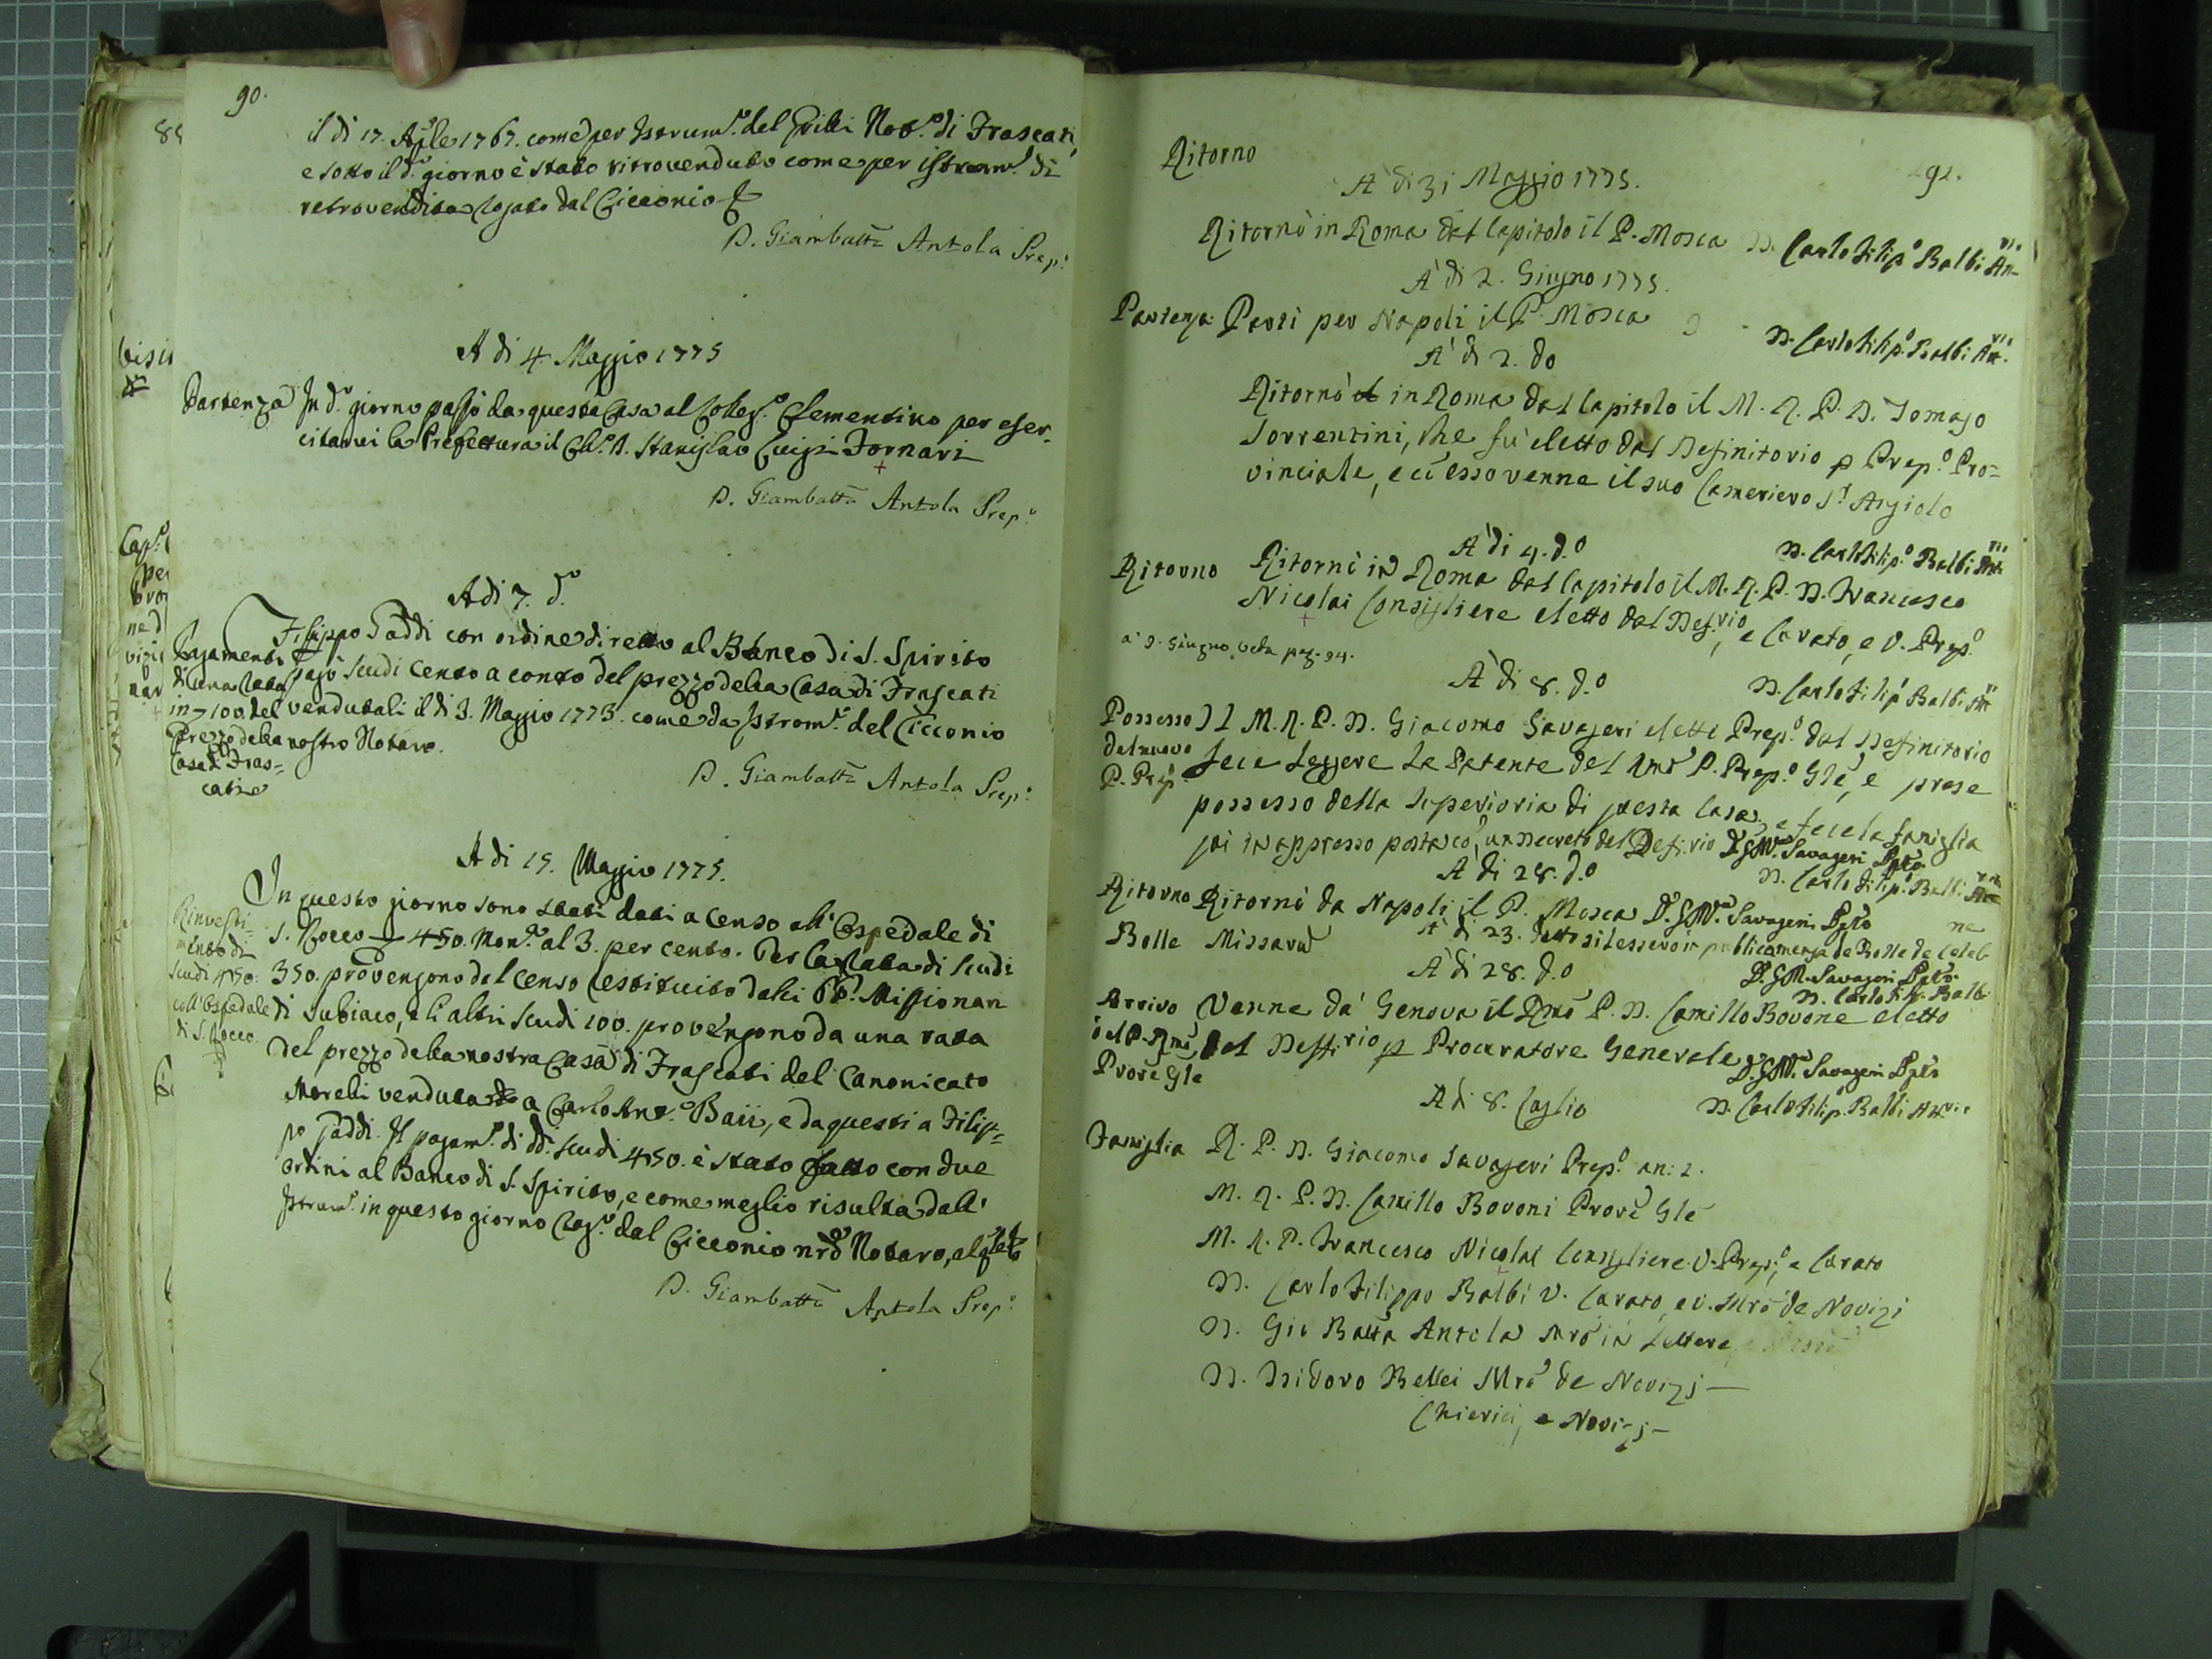 90.
il dì 17. Aple 1767. come per Istrum.to del Grilli Not.o di Frascati,
e sotto il d.o giorno è stato retrovenduto come per istrum.to di
retrovendita rogato dal Cicconio
D. Giambatta Antola Prep.o
A di 4 Maggio 1775
Partenza In d.o giorno passò da questa Casa al Colleg.o Clementino per eser-
citarvi la Prefettura il Ch.o D. Stanislao Luigi Fornari
D. Giambatta Antola Prep.o
A di 7. d.o
Filippo Taddi con ordine diretto al Banco di S. Spirito
pagò scudi cento a conto del prezzo della Casa di Frascati
vendutali il dì 3. Maggio 1773. come da Istrom.to del Cicconio
nostro Notaro.
Pagamento
di una rata
in 100. del
prezzo della
Casa di Fras=
cati
D. Giambatta Antola Prep.o
A di 15. Maggio 1775.
In questo giorno sono stati dati a Censo all' Ospedale di
S. Rocco 450. Mon.ta al 3. per cento. Per la rata di scudi
350. provengono dal censo restituito dalli PP. Missionari
di Subiaco, e li altri scudi 100. provengono da una rata
del prezzo della nostra Casa di Frascati del Canonicato
Morelli venduta a Carlo Ant.o Baii, e da questi a Filip=
po Taddi. Il pagam.to di dd. scudi 450. è stato fatto con due
ordini al Banco di S. Spirito, e come meglio risulta dall'
Istrum.to in questo giorno rog.to dal Cicconio nrõ Notaro, al qle
Rinvesti-
mento di
scudi 450.
coll' Ospedale
di S. Rocco
D. Giambatta Antola Prep.o
91.
Ritorno
A' di 31 Maggio 1775.
Ritornò in Roma dal Capitolo il P. Mosca D. Carlo Filip.o Balbi
A' di 2. Giugno 1775.
Partenza Partì per Napoli il P. Mosca
D. Carlo Filip.o Balbi
A' di 2. do
Ritornò in Roma dal Capitolo il M. R. P. D. Tomaso
Sorrentini, che fu eletto dal Definitorio p Prep.o Pro=
vinciale, e cũ esso venne il suo Cameriero Angiolo
A' di 4. d.o D. Carlo Filip.o Balbi
Ritorno Ritornò in Roma dal Capitolo il M. R. P. D. Francesco
Nicolai Consigliere eletto dal Def.rio, e Curato, e V. Prep.o
a' 9. Giugno Veda pag. 94.
A' di 8. d.o D. Carlo Filip.o Balbi
Possesso
del nuovo
P. Prep.o
Il M. R. P. D. Giacomo Savageri eletto Prep.o dal Definitorio
fece leggere la Patente del Rmõ P. Prep.o Glẽ, e prese
possesso della Superioria di questa Casa, e fece la famiglia
qui in appresso posta cõ un decreto del Defi.rio D. G. M. Savageri Ppto
A' di 28. d.o D. Carlo Filip.o Balbi
Ritorno Ritornò da Napoli il P. Mosca D. G. M. Savageri Ppto
Bolle Missarũ A' di 23. detto si lessero in publica mensa le Bolle de Celeb
ne
A' di 28. d.o D. G. M. Savageri Ppto
D. Carlo Fil. Balbi
Arrivo
del P. Rmõ
Prorẽ Glẽ
Venne da' Genova il Rmõ P. D. Camillo Bovone eletto
dal Deffi.rio p Procuratore Generale D. G. M. Savageri Ppto
A di 8. Luglio D. Carlo Filip. Balbi
Famiglia R. P. D. Giacomo Savageri Prep.o an: 2.
M. R. P. D. Camillo Bovoni Prorẽ Glẽ
M. R. P. Francesco Nicolai Consigliere V. Prep.o, e Curato
D. Carlo Filippo Balbi V. Curato, e V. Mrõ de Novizi
D. Gio Batta Antola Mrõ in Lettere
D. Isidoro Bellei Mrõ de Novizj
Chierici, e Novizj